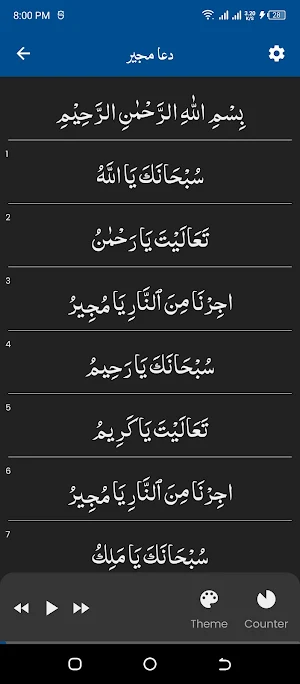 8:00 PM 3.20 K/s 28
دعا مجیر
بِسْمِ اللّٰهِ الرَّحْمٰنِ الرَّحِيْمِ
1
سُبْحَانَكَ يَا اللّٰهُ
2
تَعَالَيْتَ يَا رَحْمٰنُ
3
اَجِرْنَا مِنَ ٱلنَّارِ يَا مُجِيرُ
4
سُبْحَانَكَ يَا رَحِيمُ
5
تَعَالَيْتَ يَا كَرِيمُ
6
اَجِرْنَا مِنَ ٱلنَّارِ يَا مُجِيرُ
7
سُبْحَانَكَ يَا مَلِكُ
Theme Counter